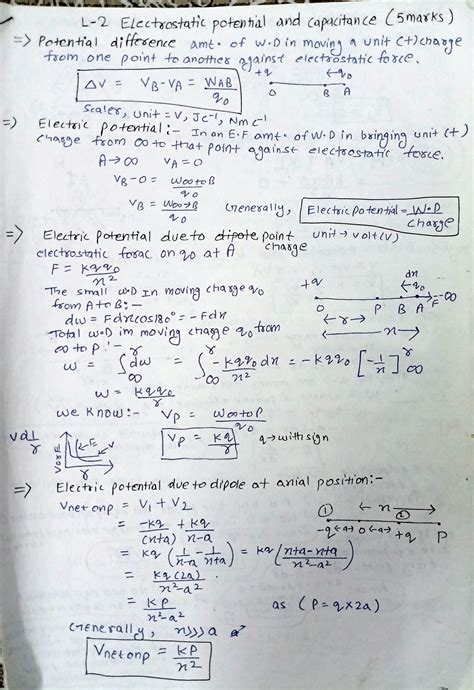 L-2 Electrostatic potential and capacitance (5marks)
=> Potential difference amt. of W.D in moving a unit (+)charge
from one point to another against electrostatic force.
ΔV = VB-VA = WAB/q0
+q ←q0
O B A
Scaler, unit = V, JC⁻¹, NmC⁻¹
=> Electric potential:- In an E.F amt. of W.D in bringing unit (+)
charge from ∞ to that point against electrostatic force.
A→∞ VA=0
VB-0 = W∞toB/q0
VB = W∞→B/q0 Generally, Electric Potential = W.D/Charge
=> Electric Potential due to dipole point charge unit → volt(V)
electrostatic forac on q0 at A
F = Kqq0/x²
The small W.D In moving charge q0
from A to B:-
dw = Fdxcos180° = -Fdx
+q dx ←q0
O P B A F -∞
←r→
←x→
Total W.D im moving charge q0 from
∞ to P:-
W = ∫∞^r dw = ∫∞^r -Kqq0/x² dx = -Kqq0 [-1/x]∞^r
W = Kqq0/r
We Know:- VP = W∞toP/q0
VP = Kq/r q→with sign
V or E E V r
=> Electric potential due to dipole at axial position:-
Vnet onp = V1 + V2
= -Kq/(x+a) + Kq/x-a
① ② ←x→
-q ←a→ O ←a→ +q P
= Kq (1/x-a - 1/x+a) = Kq (x+a-x+a/x²-a²)
= Kq(2a)/x²-a²
= KP/x²-a² as (P=q×2a)
Generally, x>>>a
Vnet onp = KP/x²